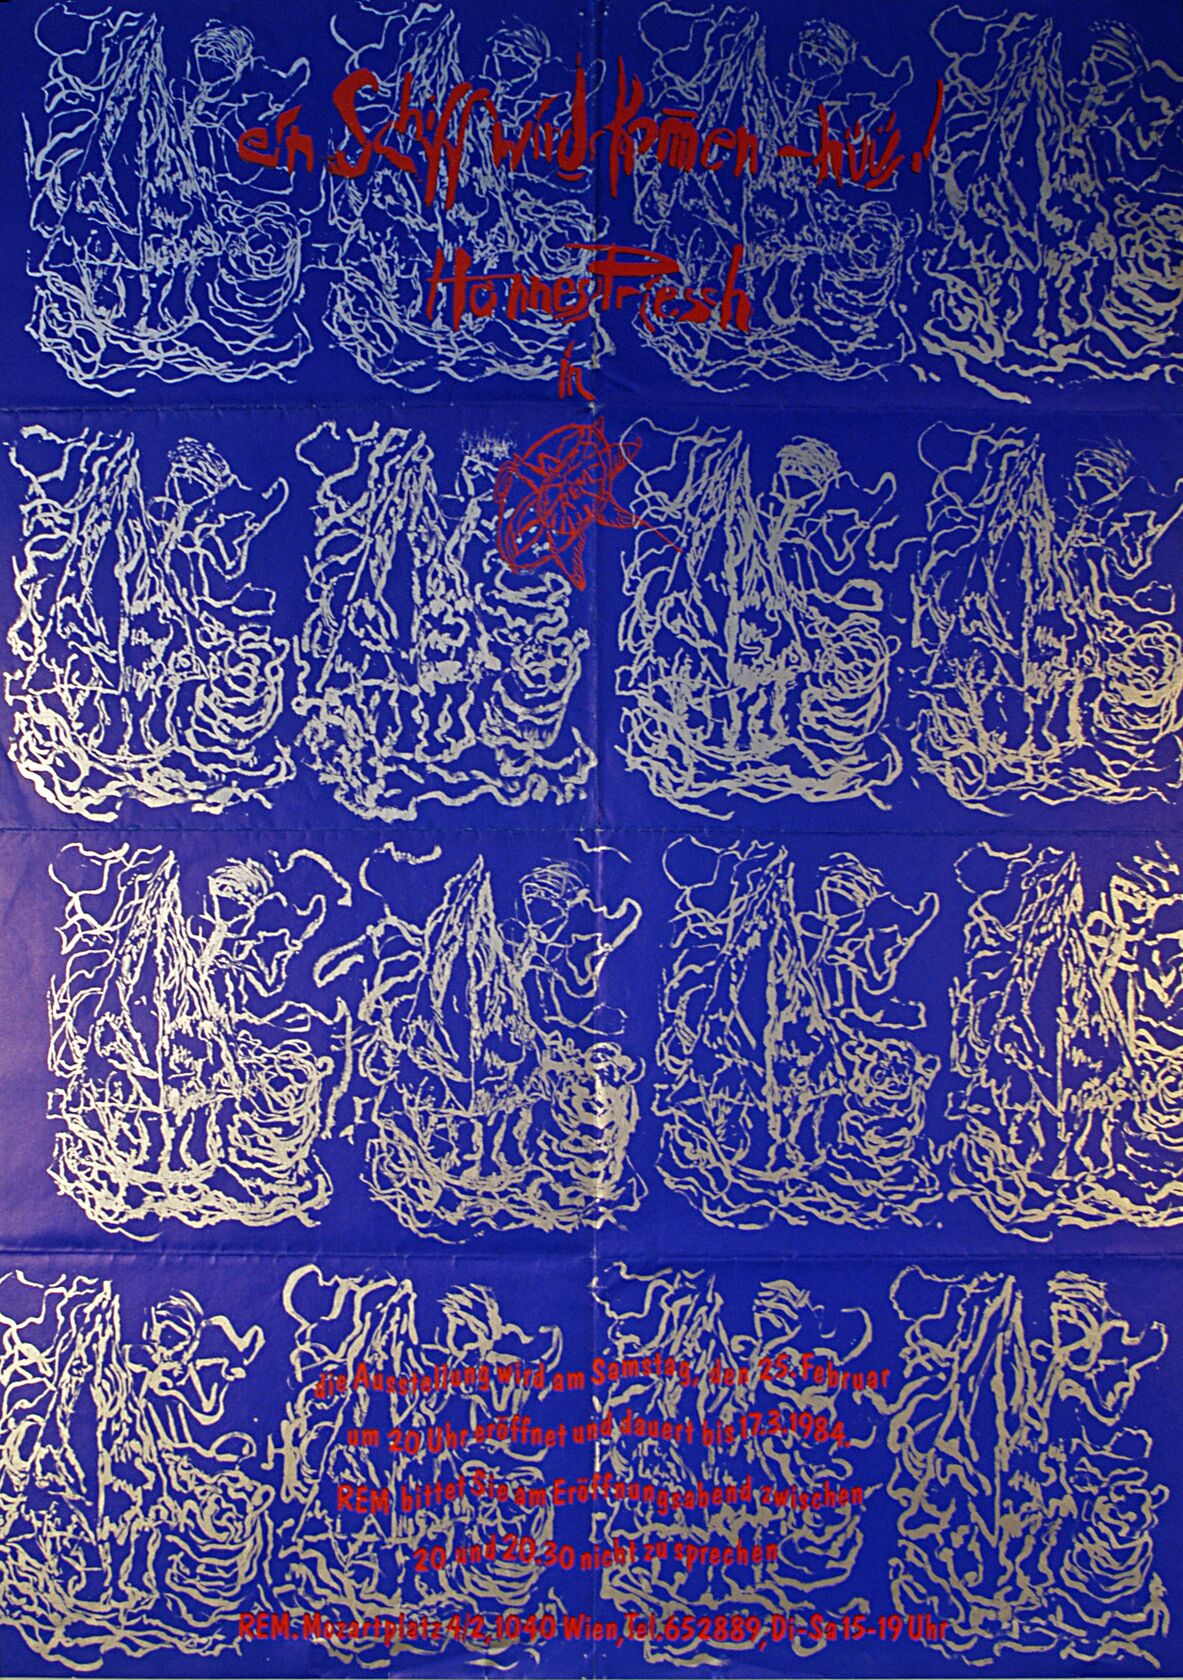 ein Schiff wird kommen – hüü!
Hannes Priesch
in
die Ausstellung wird am Samstag, den 25. Februar
um 20 Uhr eröffnet und dauert bis 17.3.1984.
REM bittet Sie am Eröffnungsabend zwischen
20 und 20.30 nicht zu sprechen
REM: Mozartplatz 4/2, 1040 Wien, Tel. 652889, Di-Sa 15-19 Uhr